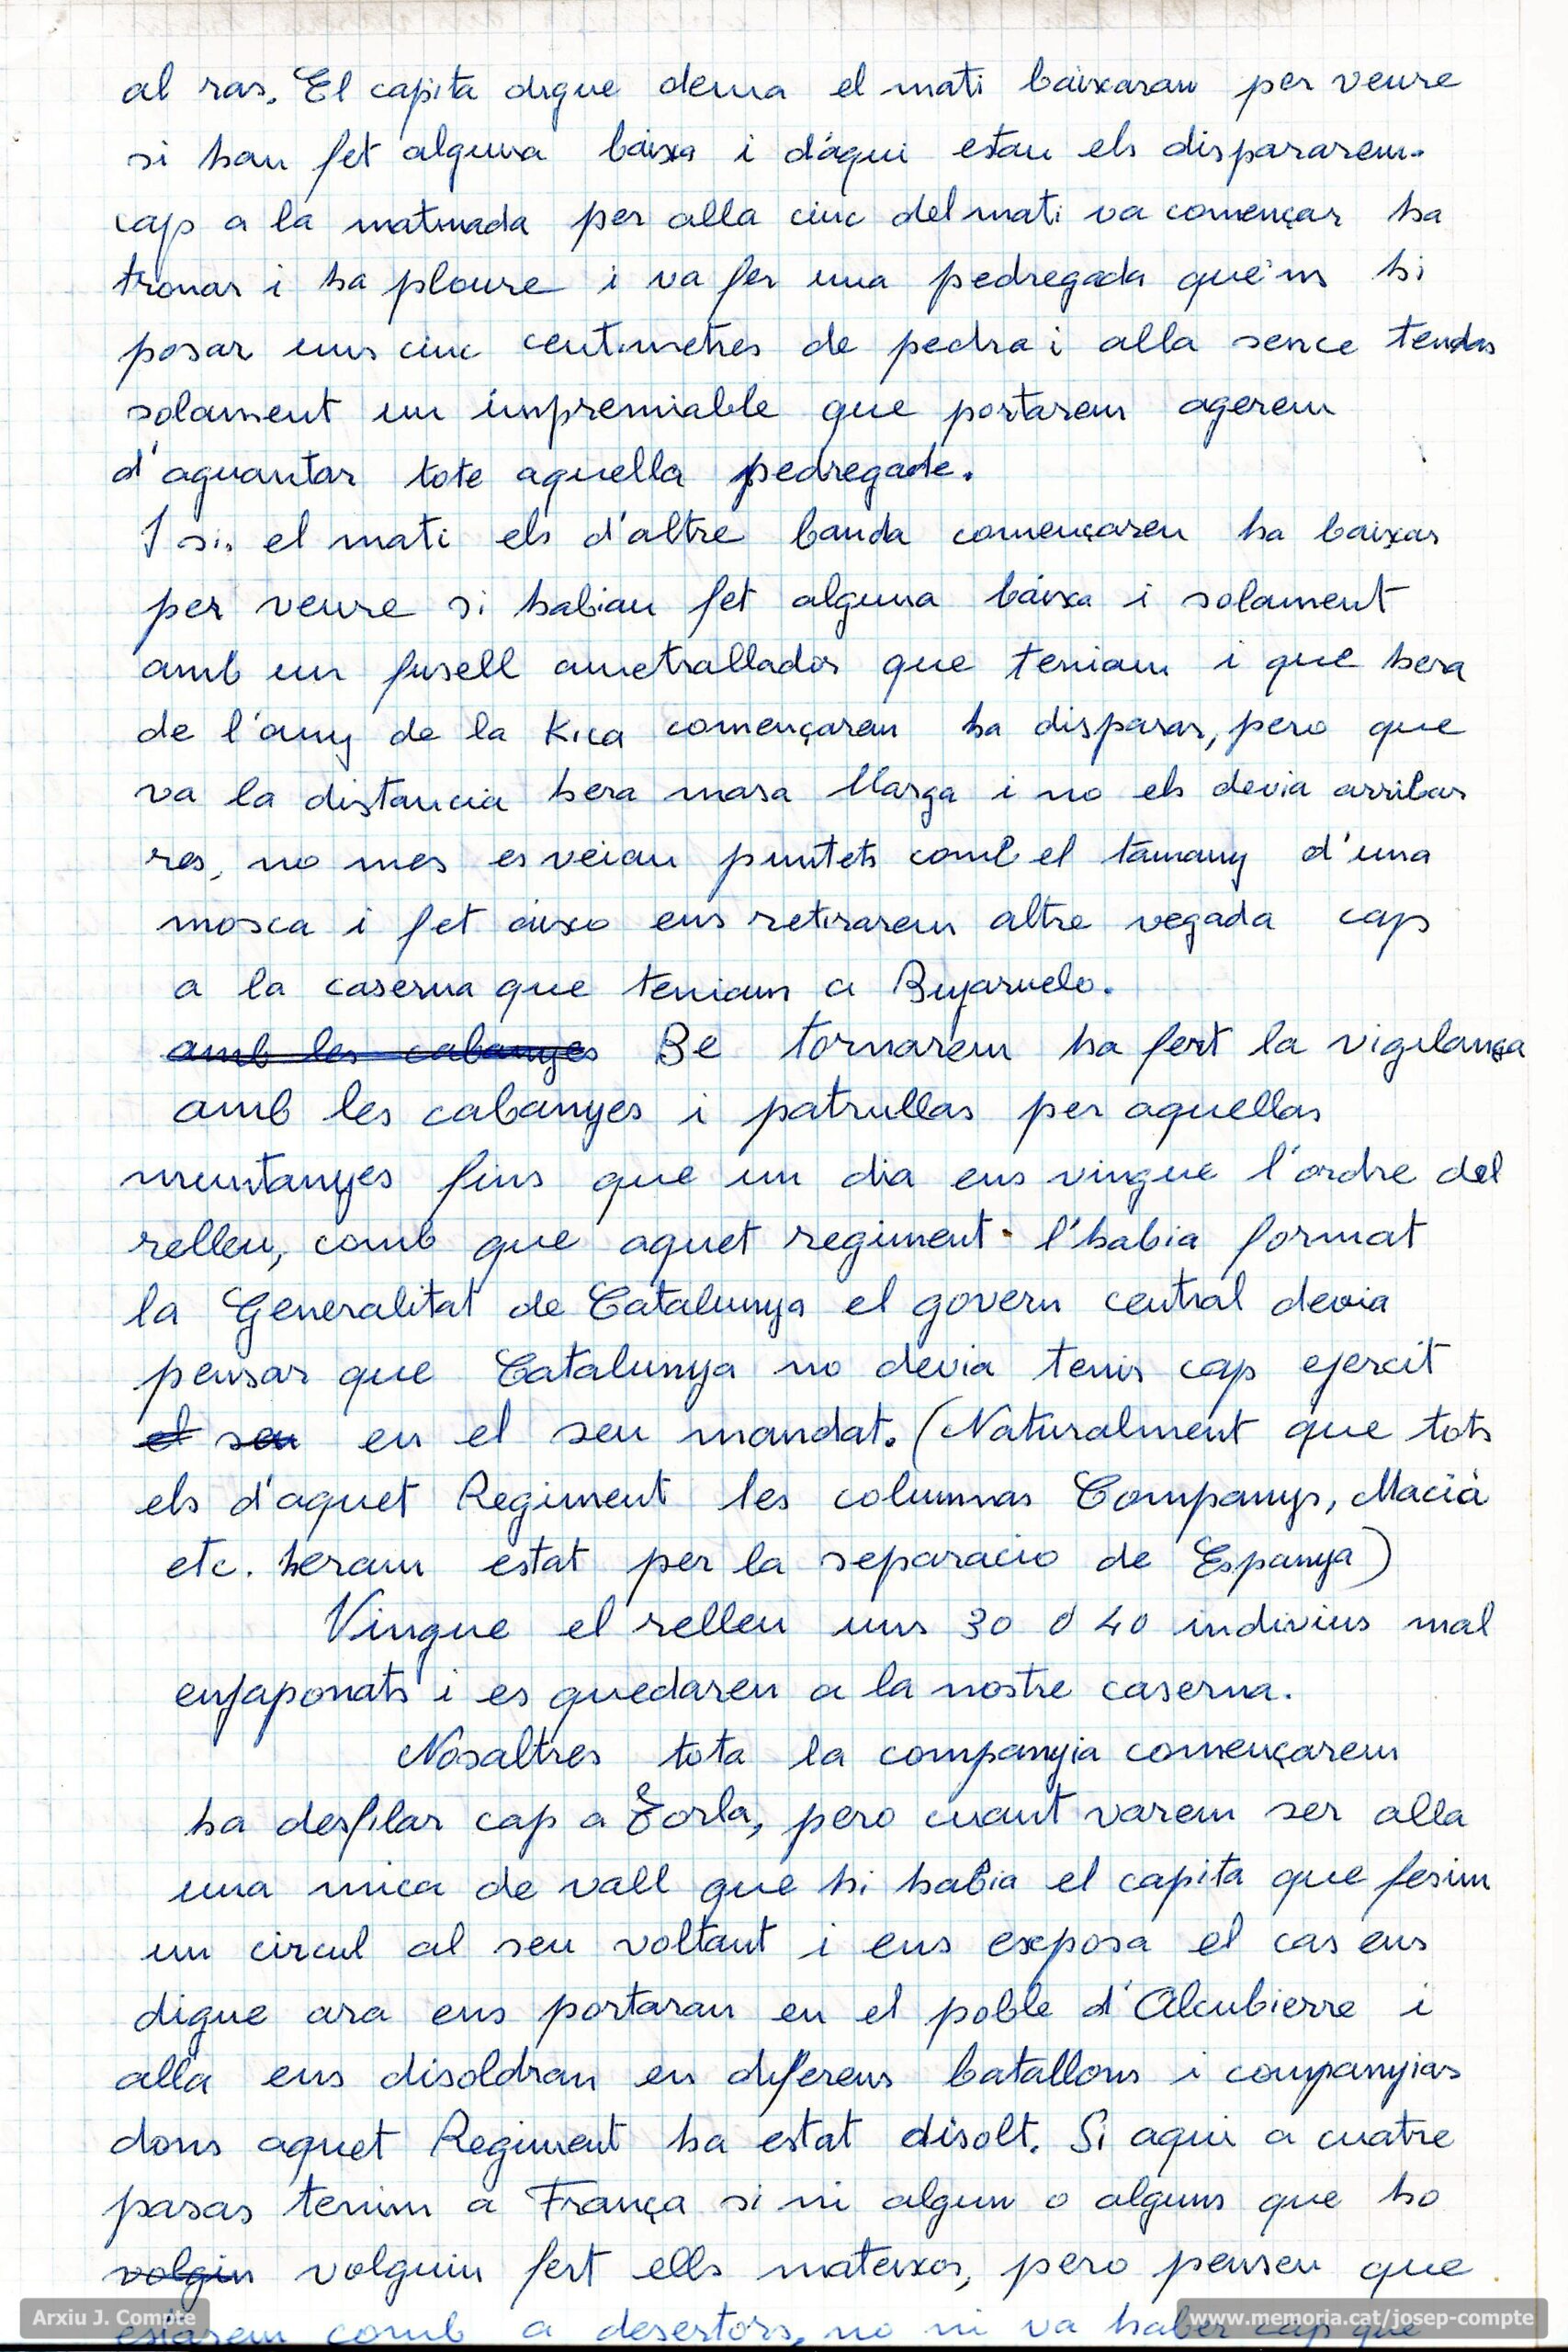 al ras. El capita digue dema el mati baixaran per veure
si han fet alguna baixa i d'aqui estan els dispararem.
cap a la matinada per alla cinc del mati va començar ha
tronar i ha ploure i va fer una pedregada que'ns hi
posar uns cinc centimetres de pedra i alla sence tendas
solament un impremiable que portarem agerem
d'aguantar tote aquella pedregade.
I si, el mati els d'altre banda començaren ha baixar
per veure si habian fet alguna baixa i solament
amb un fusell ametrallador que teniam i que hera
de l'any de la Kica començaren ha disparar, pero que
va la distancia hera masa llarga i no els devia arribar
res, no mes es veian puntets comb el tamany d'una
mosca i fet aixo ens retirarem altre vegada cap
a la caserna que teniam a Bujaruelo.
amb les cabanyes Be tornarem ha fert la vigilança
amb les cabanyes i patrullas per aquellas
muntanyes fins que un dia ens vingue l'ordre del
relleu, comb que aquet regiment l'habia format
la Generalitat de Catalunya el govern central devia
pensar que Catalunya no devia tenir cap ejercit
el seu en el seu mandat. (Naturalment que tots
els d'aquet Regiment les columnas Companys, Macià
etc. heram estat per la separacio de Espanya)
Vingue el relleu uns 30 o 40 indivius mal
enjaponats i es quedaren a la nostre caserna.
Nosaltres tota la companyia començarem
ha desfilar cap a Torla, pero cuant varem ser alla
una mica de vall que hi habia el capita que fesim
un circul al seu voltant i ens exposa el cas ens
digue ara ens portaran en el poble d'Alcubierre i
alla ens disoldran en diferens batallons i companyias
dons aquet Regiment ha estat disolt. Si aqui a cuatre
pasas tenim a França si ni algun o alguns que ho
volgin volguin fert ells mateixos, pero penseu que
estarem comb a desertors, no ni va haber cap que
Arxiu J. Compte
www.memoria.cat/josep-compte